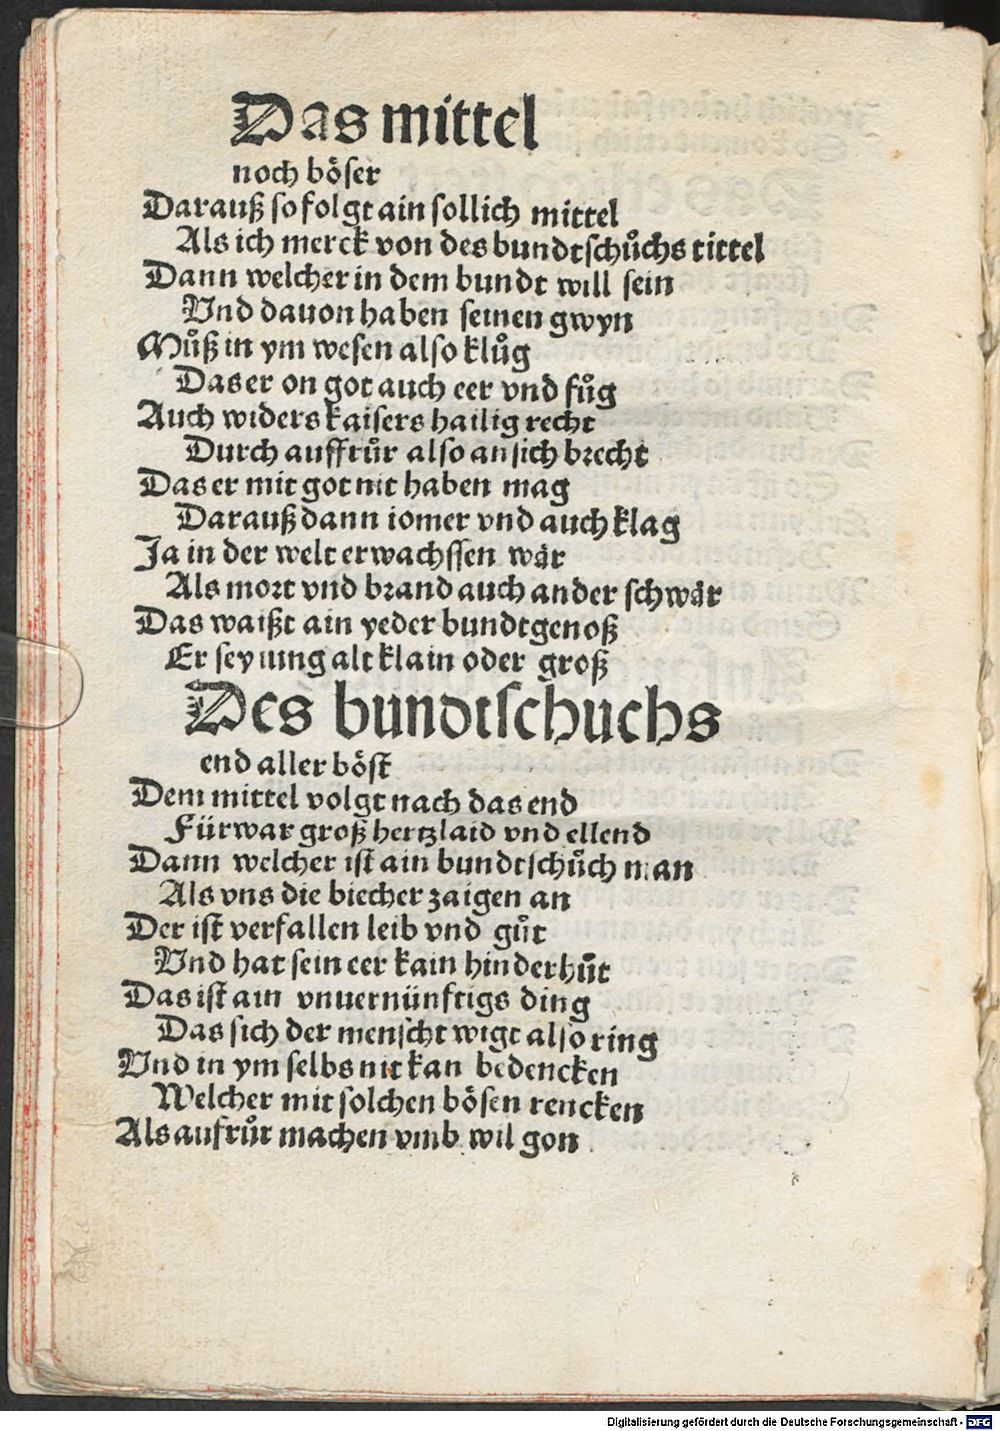 Das mittel
noch böser
Darauß so folgt ain sollich mittel
Als ich merck von des bundtschůchs tittel
Dann welcher in dem bundt will sein
Vnd dauon haben seinen gwyn
Můß in ym wesen also klůg
Das er on got auch eer vnd fůg
Auch widers kaisers hailig recht
Durch auffrůr also an sich brecht
Das er mit got nit haben mag
Darauß dann iomer vnd auch klag
Ja in der welt erwachssen wår
Als mort vnd brand auch ander schwår
Das waißt ain yeder bundtgenoß
Er sey iung alt klain oder groß
Des bundtschuchs
end aller böst
Dem mittel volgt nach das end
Fürwar groß hertzlaid vnd ellend
Dann welcher ist ain bundtschůch man
Als vns die biecher zaigen an
Der ist verfallen leib vnd gůt
Vnd hat sein eer kain hinderhůt
Das ist ain vnuernünftigs ding
Das sich der menscht wigt also ring
Vnd in ym selbs nit kan bedencken
Welcher mit solchen bösen rencken
Als aufrůr machen vmb wil gon
Digitalisierung gefördert durch die Deutsche Forschungsgemeinschaft - DFG